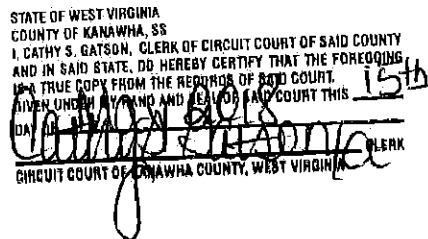 STATE OF WEST VIRGINIA
COUNTY OF KANAWHA, SS
I, CATHY S. GATSON, CLERK OF CIRCUIT COURT OF SAID COUNTY
AND IN SAID STATE, DO HEREBY CERTIFY THAT THE FOREGOING
IS A TRUE COPY FROM THE RECORDS OF SAID COURT.
GIVEN UNDER MY HAND AND SEAL OF SAID COURT THIS 15th
DAY OF 2018
Cathy S. Gatson CLERK
CIRCUIT COURT OF KANAWHA COUNTY, WEST VIRGINIA